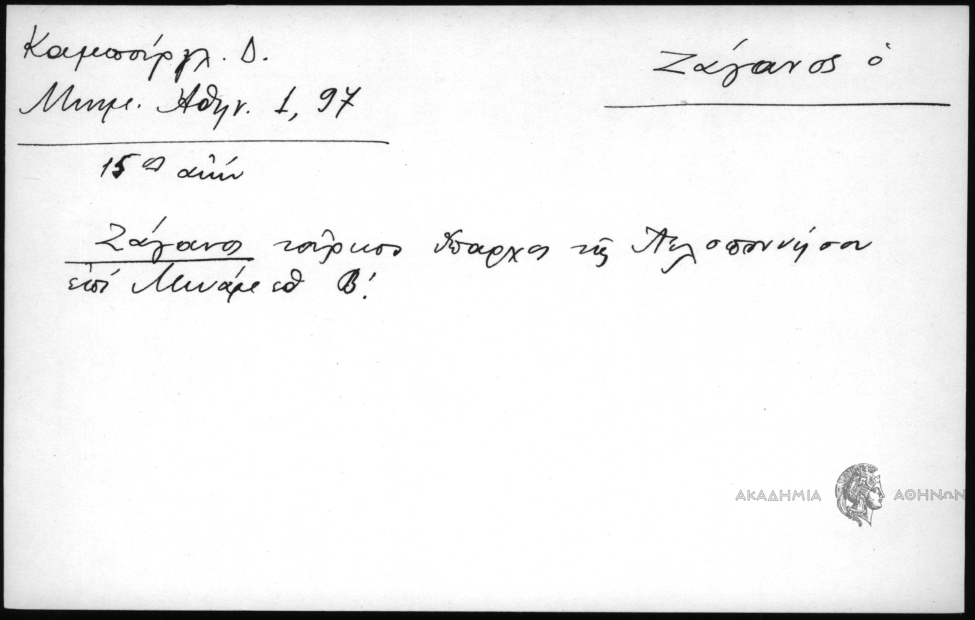 Καμπούρογλ. Δ.
Μνημ. Ἀθην. 1, 97
Ζάγανος ὁ
15ος αἰών
Ζάγανος τοῦρκος ὕπαρχος τῆς Πελοποννήσου
ἐπί Μωάμεθ Β!
ΑΚΑΔΗΜΙΑ ΑΘΗΝΩΝ